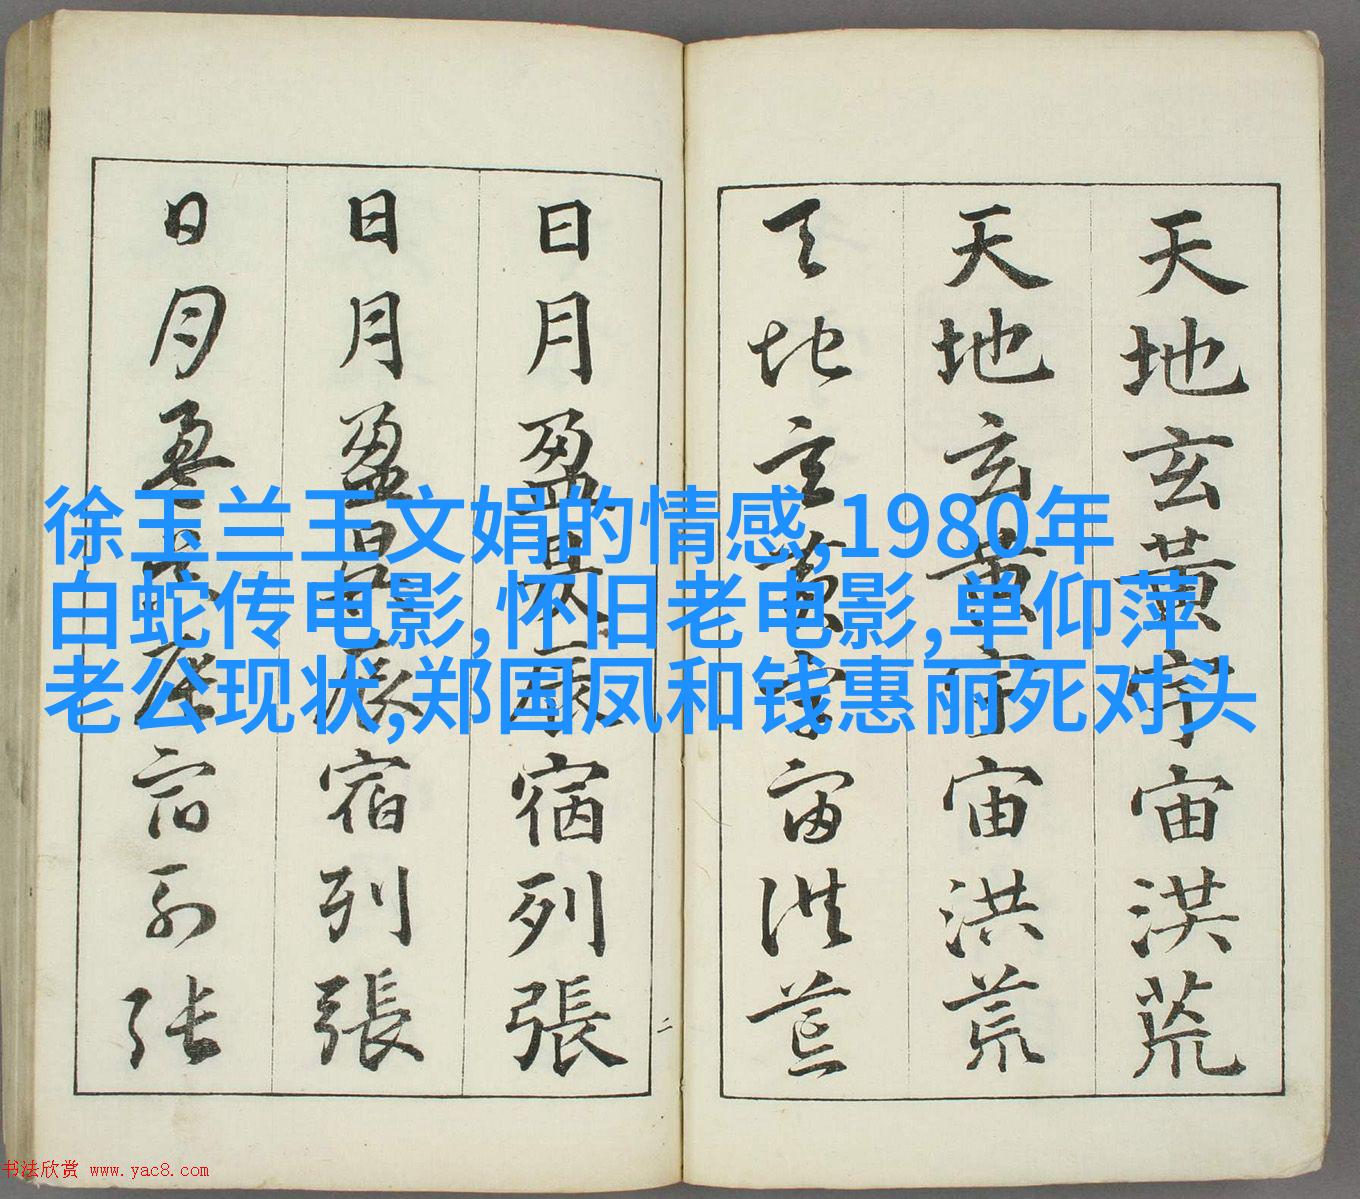 天地玄黃宇宙洪荒
天地玄黃宇宙洪荒
天地玄黃宇宙洪荒
二
日月盈昃辰宿列張
日月盈昃辰宿列張
日月盈昃辰宿列張
徐玉兰王文娟的情感,1980年
白蛇传电影,怀旧老电影,单仰萍
老公现状,郑国凤和钱惠丽死对头
书法欣赏 www.yac8.com